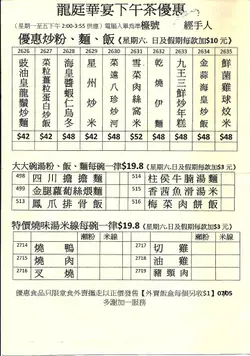 龍庭華宴下午茶優惠
(星期一至五下午2:00-3:55供應) 電腦入單為準 檯號 經手人
優惠炒粉、麵、飯 (星期六、日及假期每款加$10元)
2626 2625 2627 2628 2629 2630 2631 2632 2633 2634 2635
豉油皇龍鬚炒麵
菜粒菠蘿蛋炒飯
海皇醬蝦仁烏冬
星州炒米
菜遠八珍炒窩
雪菜肉絲炆米
乾燒伊麵
九王三鮮炒年糕
金蒜海皇炒飯
鮮菌雞球炆
$42 $42 $42 $42 $48 $48 $48 $48 $48 $48 $48
大大碗湯粉、飯、麵每碗一律$19.8 (星期六、日及假期每款加$3元)
498 四川擔擔麵 514 柱侯牛腩湯麵
499 金腿蘿蔔絲煨麵 515 香茜魚滑湯米
513 鳳爪排骨飯 516 梅菜肉餅飯
特價燒味湯米線每碗一律$19.8 (星期六、日及假期每款加$3元)
瀨粉 米線 瀨粉 米線
2714 燒鴨 2717 切雞
2715 燒肉 2718 油雞
2716 叉燒 2719 豬頸肉
優惠食品只限堂食外賣攜走以正價發售【外賣飯盒每個另收$1】07/05
多謝加一服務